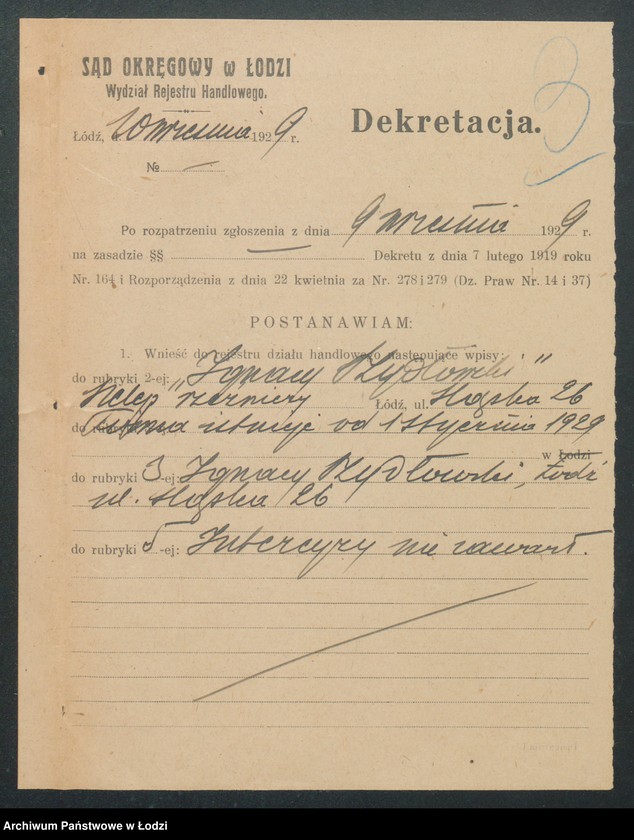 SĄD OKRĘGOWY w ŁODZI
Wydział Rejestru Handlowego.
Dekretacja.
3
Łódź, d. 10 września 1929 r.
№ —
Po rozpatrzeniu zgłoszenia z dnia 9 września 1929 r.
na zasadzie §§ — Dekretu z dnia 7 lutego 1919 roku
Nr. 164 i Rozporządzenia z dnia 22 kwietnia za Nr. 278 i 279 (Dz. Praw Nr. 14 i 37)
POSTANAWIAM:
1. Wnieść do rejestru działu handlowego następujące wpisy:
do rubryki 2-ej: „Ignacy Szydłowski"
Sklep rzeźniczy Łódź, ul. Śląska 26
do rubryki Firma istnieje od 1 stycznia 1929
w Łodzi
do rubryki 3-ej: Ignacy Szydłowski, Łódź
ul. Śląska 26
do rubryki 5-ej: Intercyzy nie zawarł.
Archiwum Państwowe w Łodzi